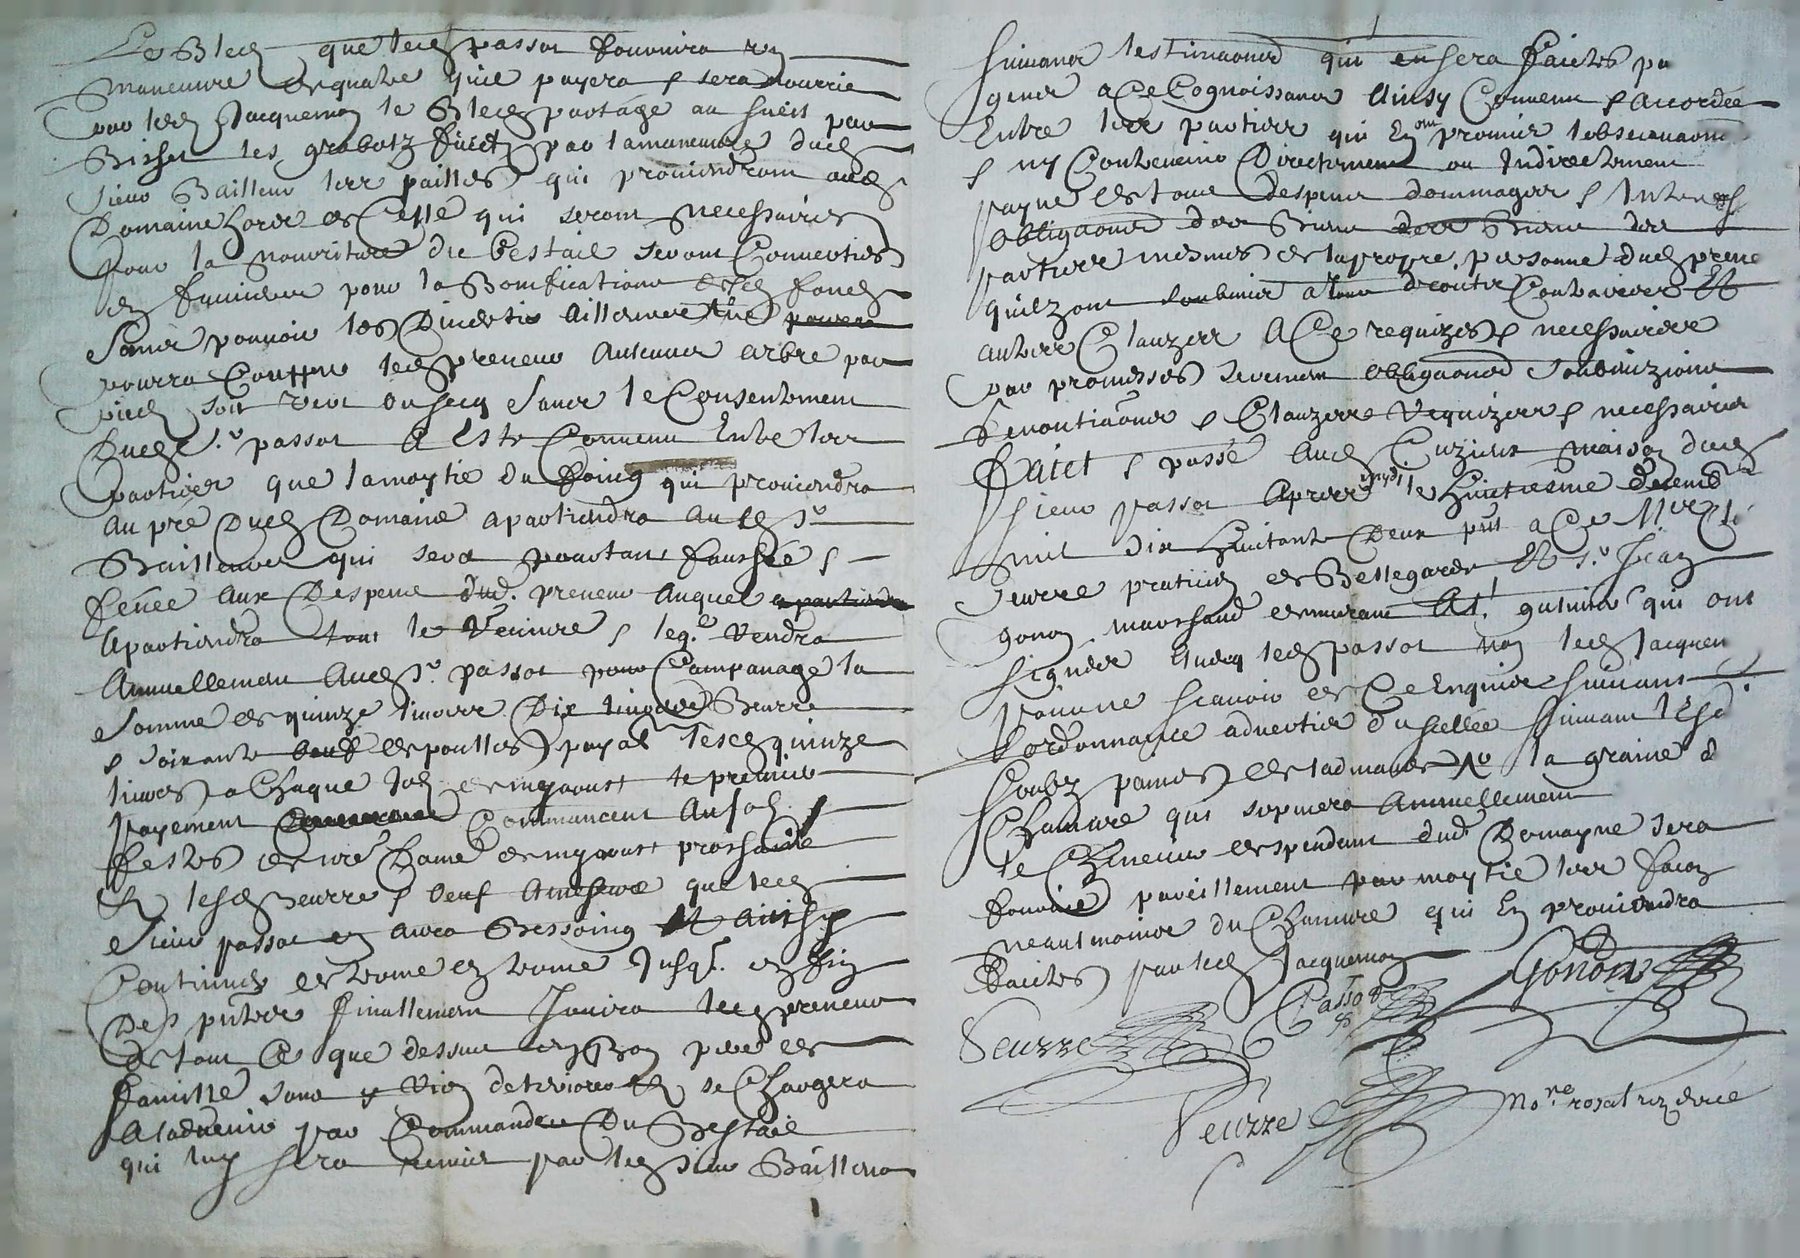 Le Bled que led passot fournira un
maneuvre et quatre quil payera & sera nourrie
par led Jacquemon le Bled partagé au sueil par
Bisset les grabotz faict par la maneuvre dud
sieur Bailleur les pailles qui proviendront aud
Domaine hors de celle qui seront necessaires
pour la nourriture du bestail seront converties
en fumier pour la Bonification desd fondz
sans pouvoir les divertir ailleurs ne
pourra coupper led preneur aulcuns arbre par
pied soit vert ou secq sans le consentement
Dud Sr. passot a esté convenu entre les
parties que la moytie du foing qui proviendra
au pré dud Domaine apartiendra aud Sr
Bailleur qui sera pourtant fauchée &
fenée aux despens dud. preneur auquel
apartiendra tout le & leql. vendra
annuellement aud Sr. passot pour campanage la
somme de quinze livres Dix livres Beurre
& soixante oeuf de poulles payab lesd quinze
livres a chaque de my aoust le premier
payement commancent
festes de nre Dame de my aoust prochaine
Et lesd Beurre & oeuf a mesure que led
Sieur passot en aura Bessoing Et ainsy
continuer de terme en terme Jusq. en fin
Des putes finallement Jouira led preneur
de tout ce que dessus en Bon pere de
famille sans y rien deteriorer Et se chargera
a ladvenir par commande Du Bestail
qui luy sera remis par led sieur Bailleur
suivant lestimaons qui en sera faictes pa
gens a ce cognoissans Ainsy convenu & accordée
Entre les parties qui En ont promis lobservaon
& ny contevenir Directement ou Indirectement
payne de tous despens dommages & Interest
obligaons des Biens des Biens des
parties mesmes de la propre personne dud prene
quilz ont soubmis a tous Et
autres clauzes a ce requizes & necessaires
par promesses serement obligaons soubmizions
Renontiaons & clauzes requizes & necessaires
Faict & passé aud Cuzieux maison dud
sieur passot apres mydi le huictiesme decemb
mil six huictante Deux pnt a ce Mre
Peurre praticien de Bellegarde Et Sr. Jean
gonon marchand demurant a St. galmier qui ont
signés avecq led passot non led Jacquem
pour ne scavoir de ce Enquis suivant
lordonnance advertis du scellée suivant lEd
soubz paines de ladmande la graine d
chanvre qui se semera annuellement
le cheneveur despendant dud Domayne sera
fournie pareillement par moytie les facon
neantmoins du chanvre qui En proviendra
Faictes par led Jacquemon
Gonon
Passot
Peurre
Peurre
No.re royal rezervé